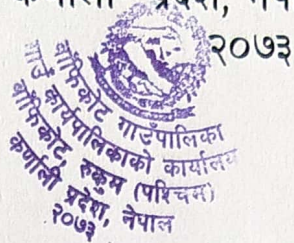 प्रदेश,
२०७३
बाँफिकोट गाउँपालिका
गाउँ कार्यपालिकाको कार्यालय
बाँफिकोट, रुकुम (पश्चिम)
कर्णाली प्रदेश, नेपाल
२०७३